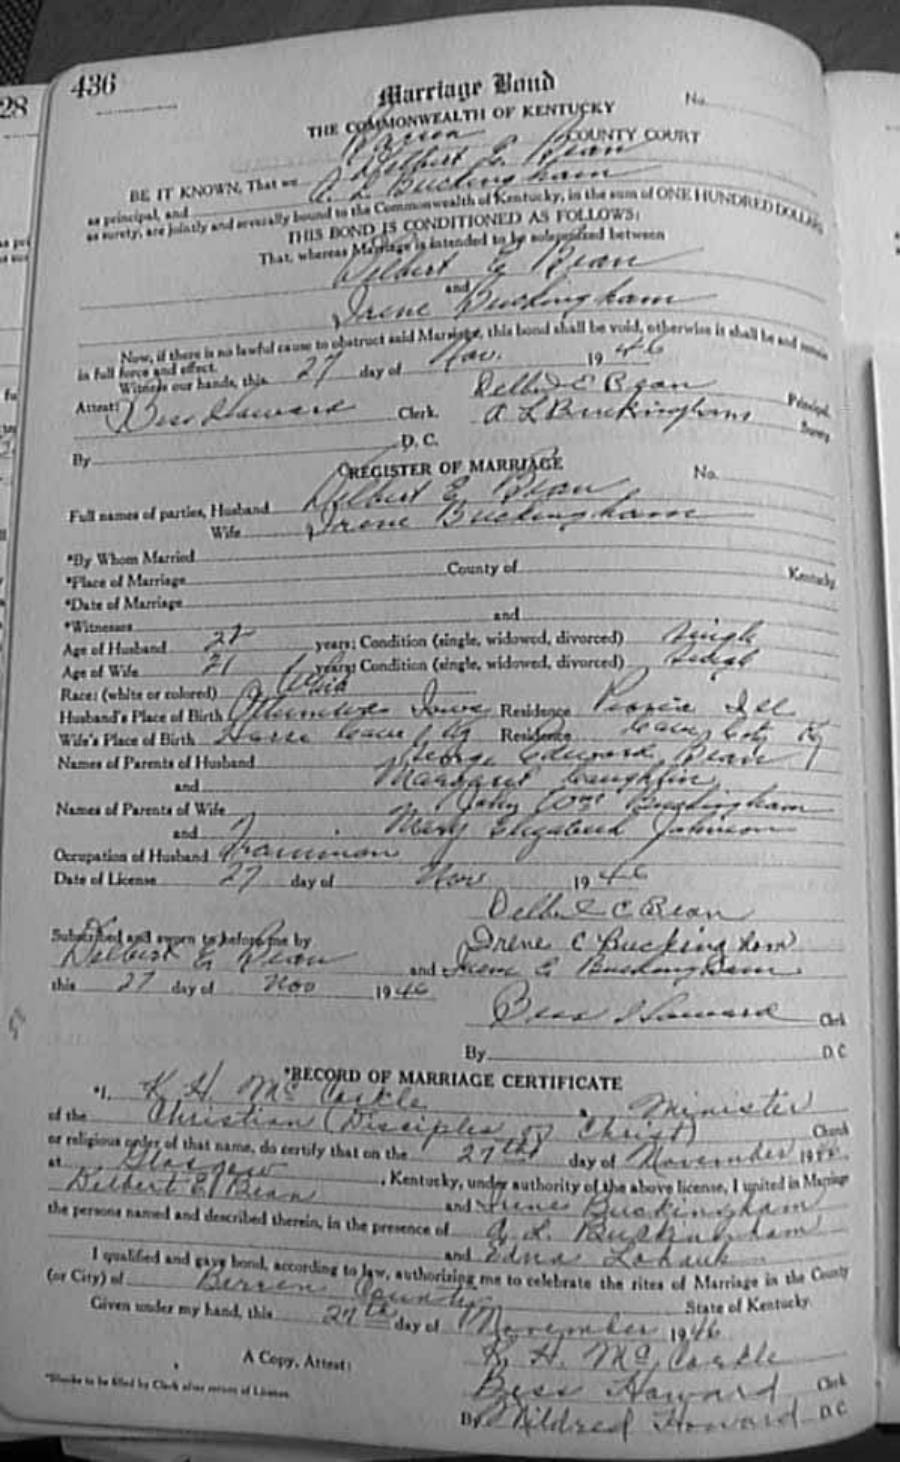 28
436
Marriage Bond
No.
THE COMMONWEALTH OF KENTUCKY
COUNTY COURT
BE IT KNOWN, That we Delbert E. Bean
as principal, and A. L. Buckingham
as surety, are jointly and severally bound to the Commonwealth of Kentucky, in the sum of ONE HUNDRED DOLLARS
THIS BOND IS CONDITIONED AS FOLLOWS:
That, whereas Marriage is intended to be solemnized between
Delbert E Bean
and
Irene Buckingham
Now, if there is no lawful cause to obstruct said Marriage, this bond shall be void, otherwise is shall be and remain
in full force and effect.
Witness our hands, this 27 day of Nov. 19 46
Delbert E Bean Principal,
Attest: Bess Howard Clerk. A L Buckingham Surety
By D. C.
REGISTER OF MARRIAGE No.
Full names of parties, Husband Delbert E Bean
Wife Irene Buckingham
*By Whom Married
*Place of Marriage County of Kentucky
*Date of Marriage
*Witnesses and
Age of Husband years; Condition (single, widowed, divorced) Single
Age of Wife 21 years; Condition (single, widowed, divorced) Single
Race: (white or colored)
Husband's Place of Birth Ottumwa Iowa Residence Peoria Ill
Wife's Place of Birth Cave Ky Residence Cave City Ky
Names of Parents of Husband George Edward Bean
and Margaret Caughlin
Names of Parents of Wife John Wm Buckingham
and Mary Elizabeth Johnson
Occupation of Husband
Date of License 27 day of Nov 19 46
Delbert E Bean
Subscribed and sworn to before me by Irene C Buckingham
Delbert E Bean and Irene C Buckingham
this 27 day of Nov 19 46
Bess Howard Clerk
By D C
*RECORD OF MARRIAGE CERTIFICATE
*I, K. H. Mc Corkle a Minister
of the Christian (Disciples of Christ) Church
or religious order of that name, do certify that on the 27th day of November 1946.
at Glasgow, Kentucky, under authority of the above license, I united in Marriage
Delbert E. Bean and Irene Buckingham
the persons named and described therein, in the presence of A. L. Buckingham
and Edna
I qualified and gave bond, according to law, authorizing me to celebrate the rites of Marriage in the County
(or City) of Barren County State of Kentucky.
Given under my hand, this 27th day of November 1946
K. H. Mc Corkle
A Copy, Attest: Bess Howard Clerk
*Blanks to be filled by Clerk after return of License By Mildred Howard D C